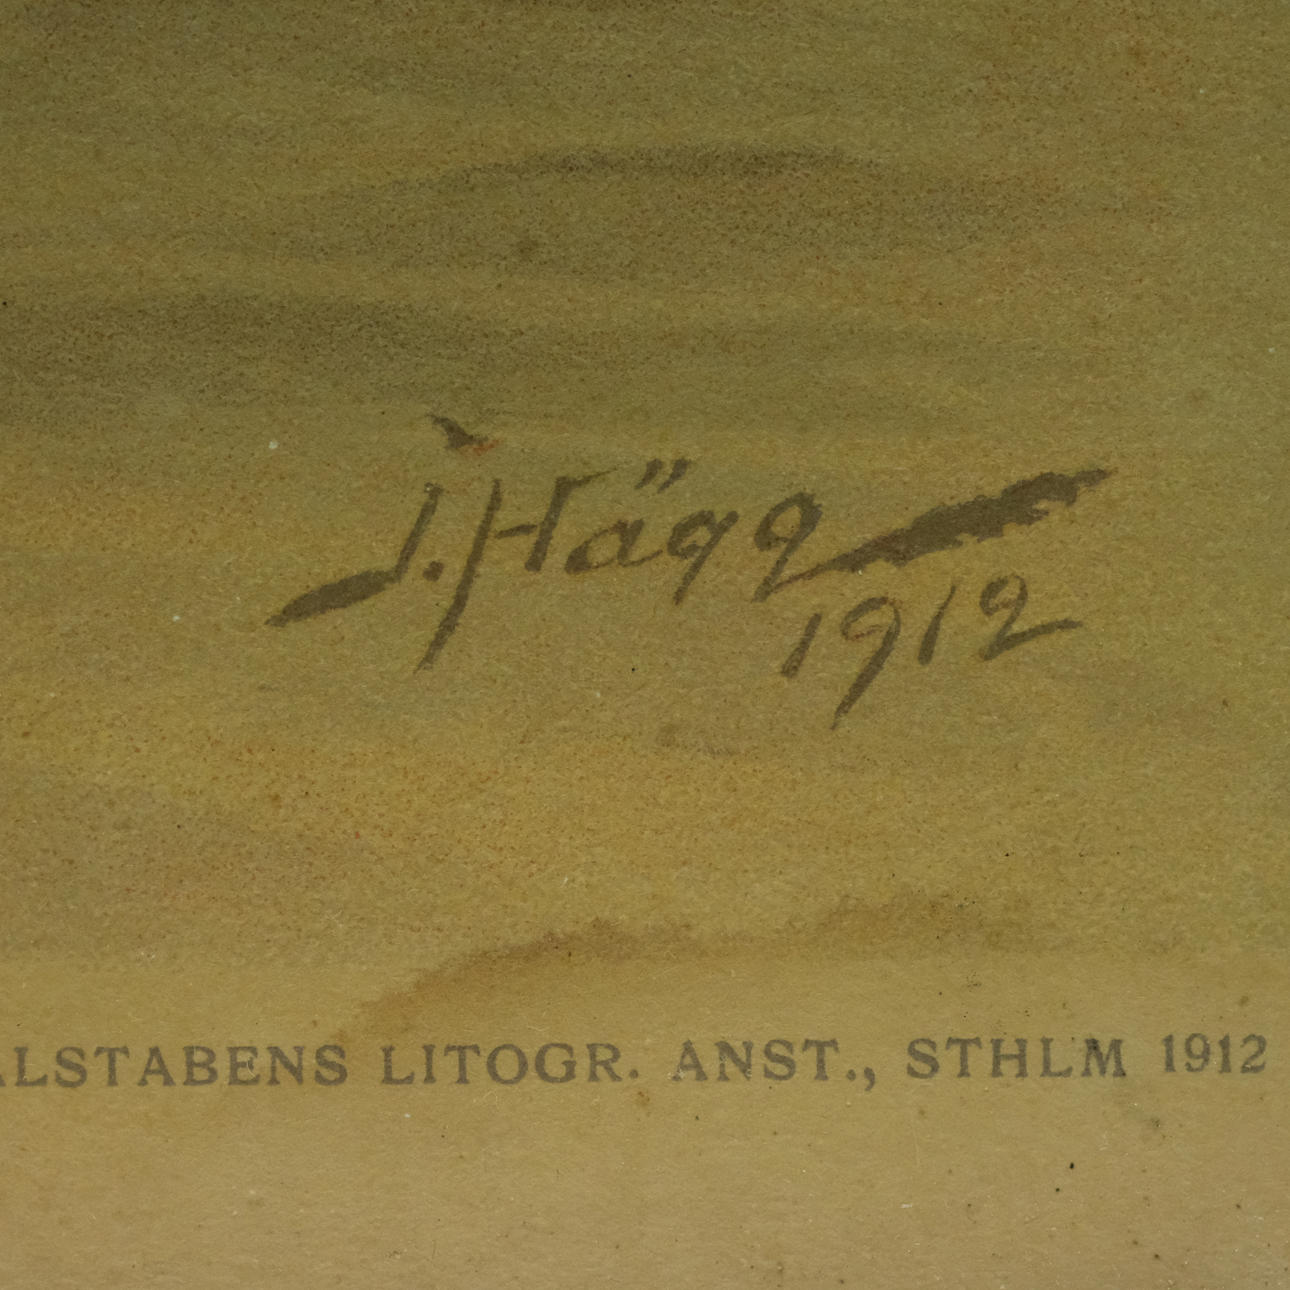 J. Hägg
1912
ALSTABENS LITOGR. ANST., STHLM 1912